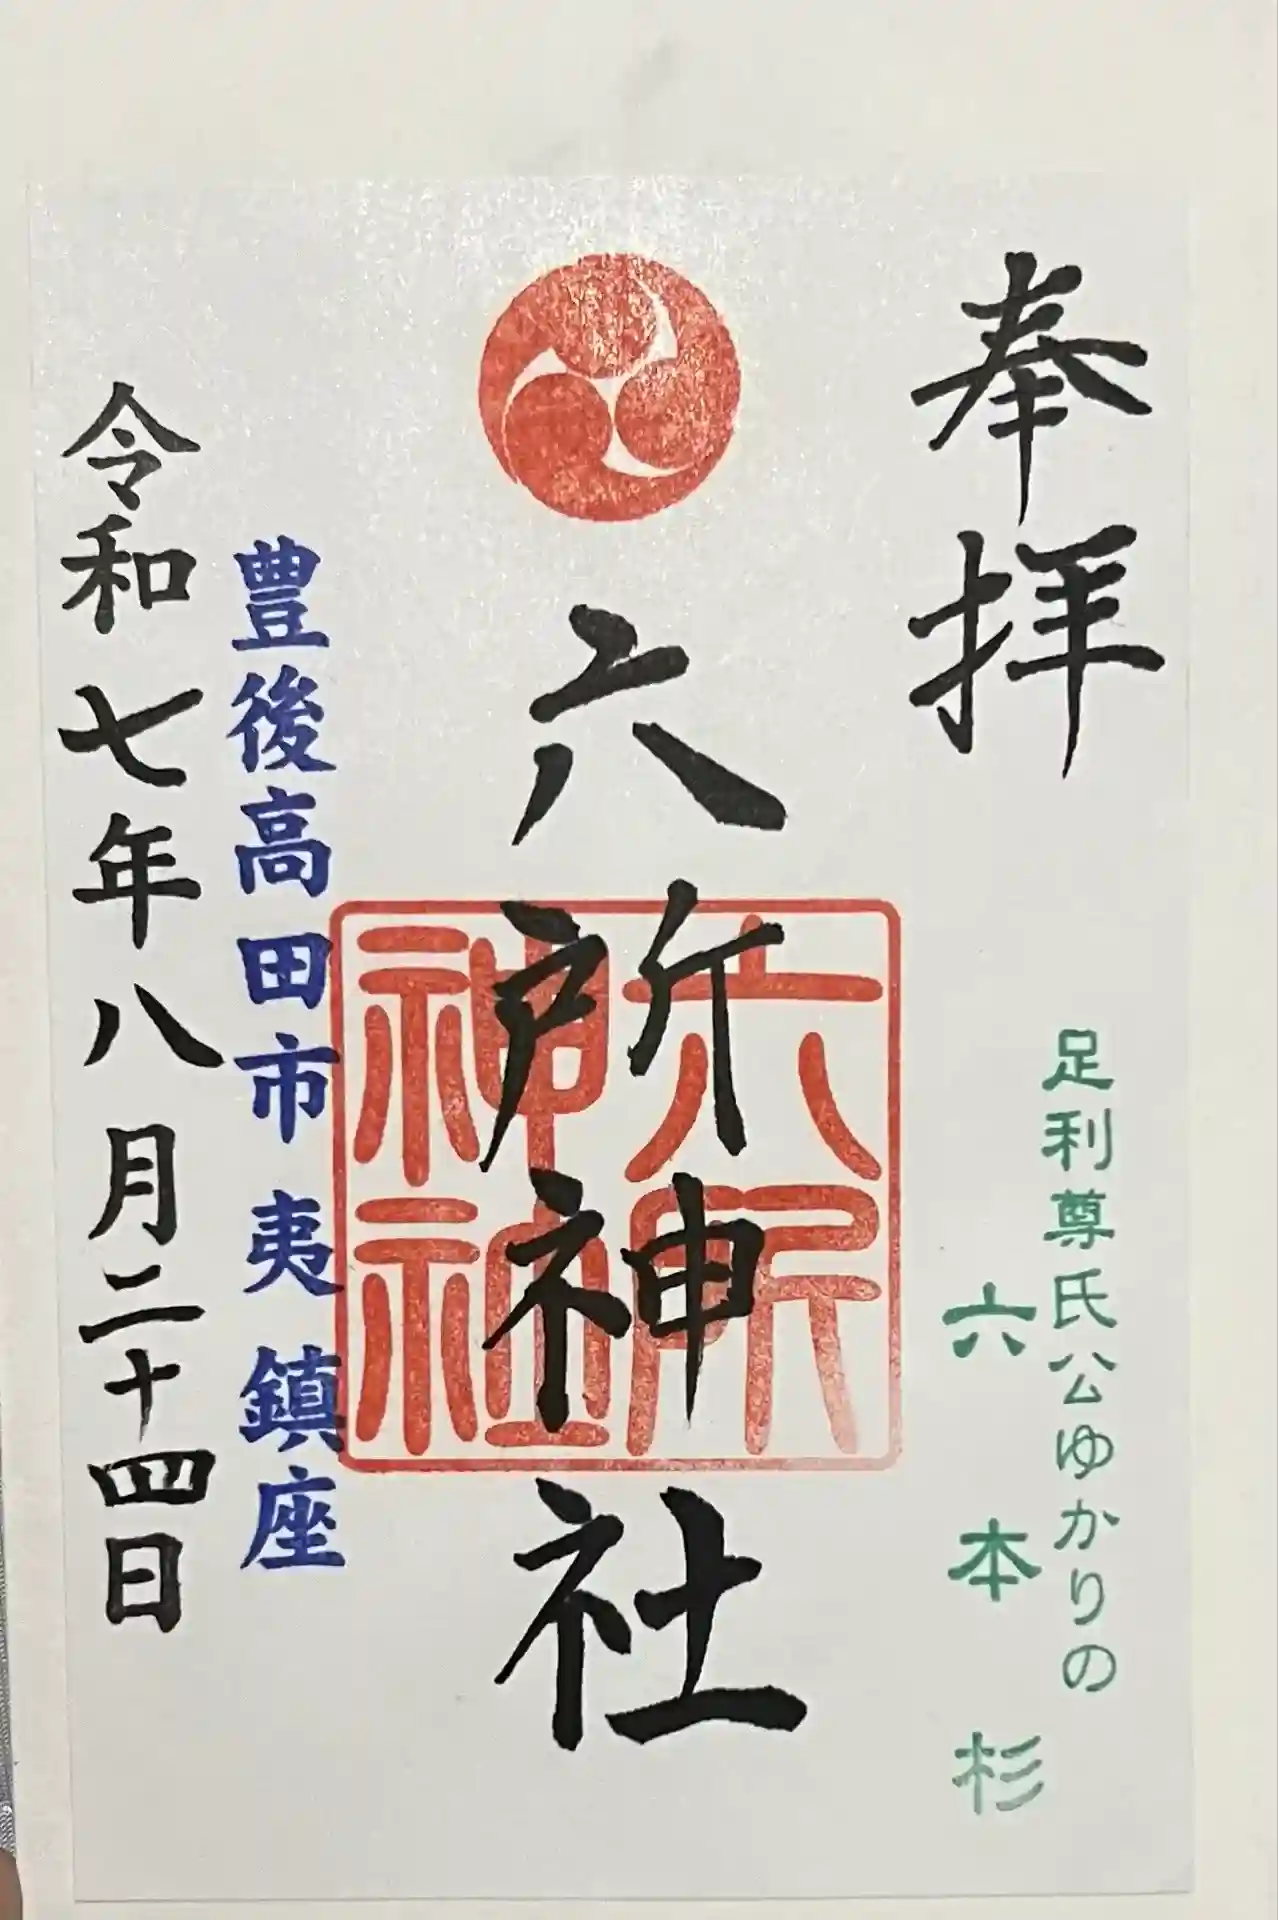 奉拝
足利尊氏公ゆかりの
六本杉
六所神社
六所
神社
豊後高田市夷鎮座
令和七年八月二十四日